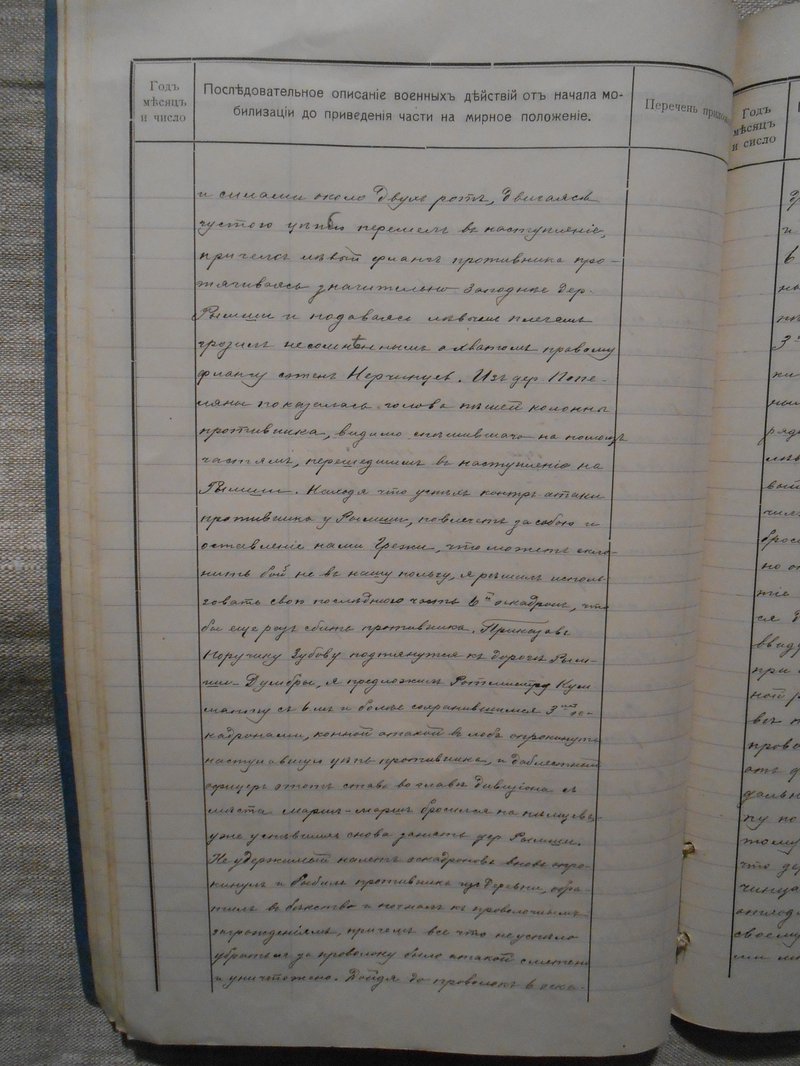 Годъ
мѣсяцъ
и число
Послѣдовательное описаніе военныхъ дѣйствій отъ начала мо-
билизаціи до приведенія части на мирное положеніе.
Перечень прилож
и силами около двухъ ротъ, двигаясь
густою цѣпью перешелъ въ наступленіе,
причемъ лѣвый флангъ противника про-
тягиваясь значительно западнѣе дер.
Рымши и подаваясь лѣвымъ плечемъ
грозилъ несомнѣннымъ охватомъ правому
флангу сотенъ Нерчинцевъ. Изъ дер. Попе-
ляны показалась голова пѣшей колонны
противника, видимо спѣшившаго на помощь
частямъ, перешедшимъ въ наступленіе на
Рымши. Находя что успѣхъ контръ-атаки
противника у Рымши, повлечетъ за собою и
оставленіе нами Грежи, что можетъ скло-
нить бой не въ нашу пользу, я рѣшилъ исполь-
зовать свою послѣднюю часть 6й эскадронъ, что
бы еще разъ сбить противника. Приказавъ
Поручику Зубову подтянутся къ дорогѣ Рым-
ши-Думбры, я предложилъ Ротмистру
съ 6мъ и болѣе сохранившимся 3мъ эс-
кадронами, конной атакой въ лобъ опрокинуть
наступавшую цѣпь противника, и доблестный
офицеръ этотъ ставъ во главѣ дивизіона съ
мѣста маршъ-маршъ бросился на нѣмцевъ,
уже успѣвшихъ снова занять дер. Рымши.
Не удержимый налетъ эскадроновъ вновь опро-
кинулъ и выбилъ противника изъ деревни, обра-
тилъ въ бѣгство и погналъ къ проволочнымъ
загражденіямъ, причемъ все что не успѣло
убраться за проволоку было атакой смятено
и уничтожено. Дойдя до проволокъ 6 эска-
Годъ
мѣсяцъ
и сисло